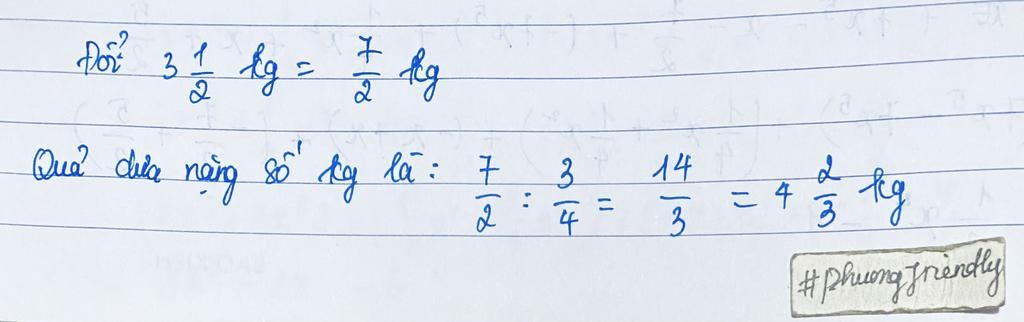 Đổi 3 1/2 kg = 7/2 kg
Quả dưa nặng số kg là: 7/2 : 3/4 = 14/3 = 4 2/3 kg
#phuongfriendly